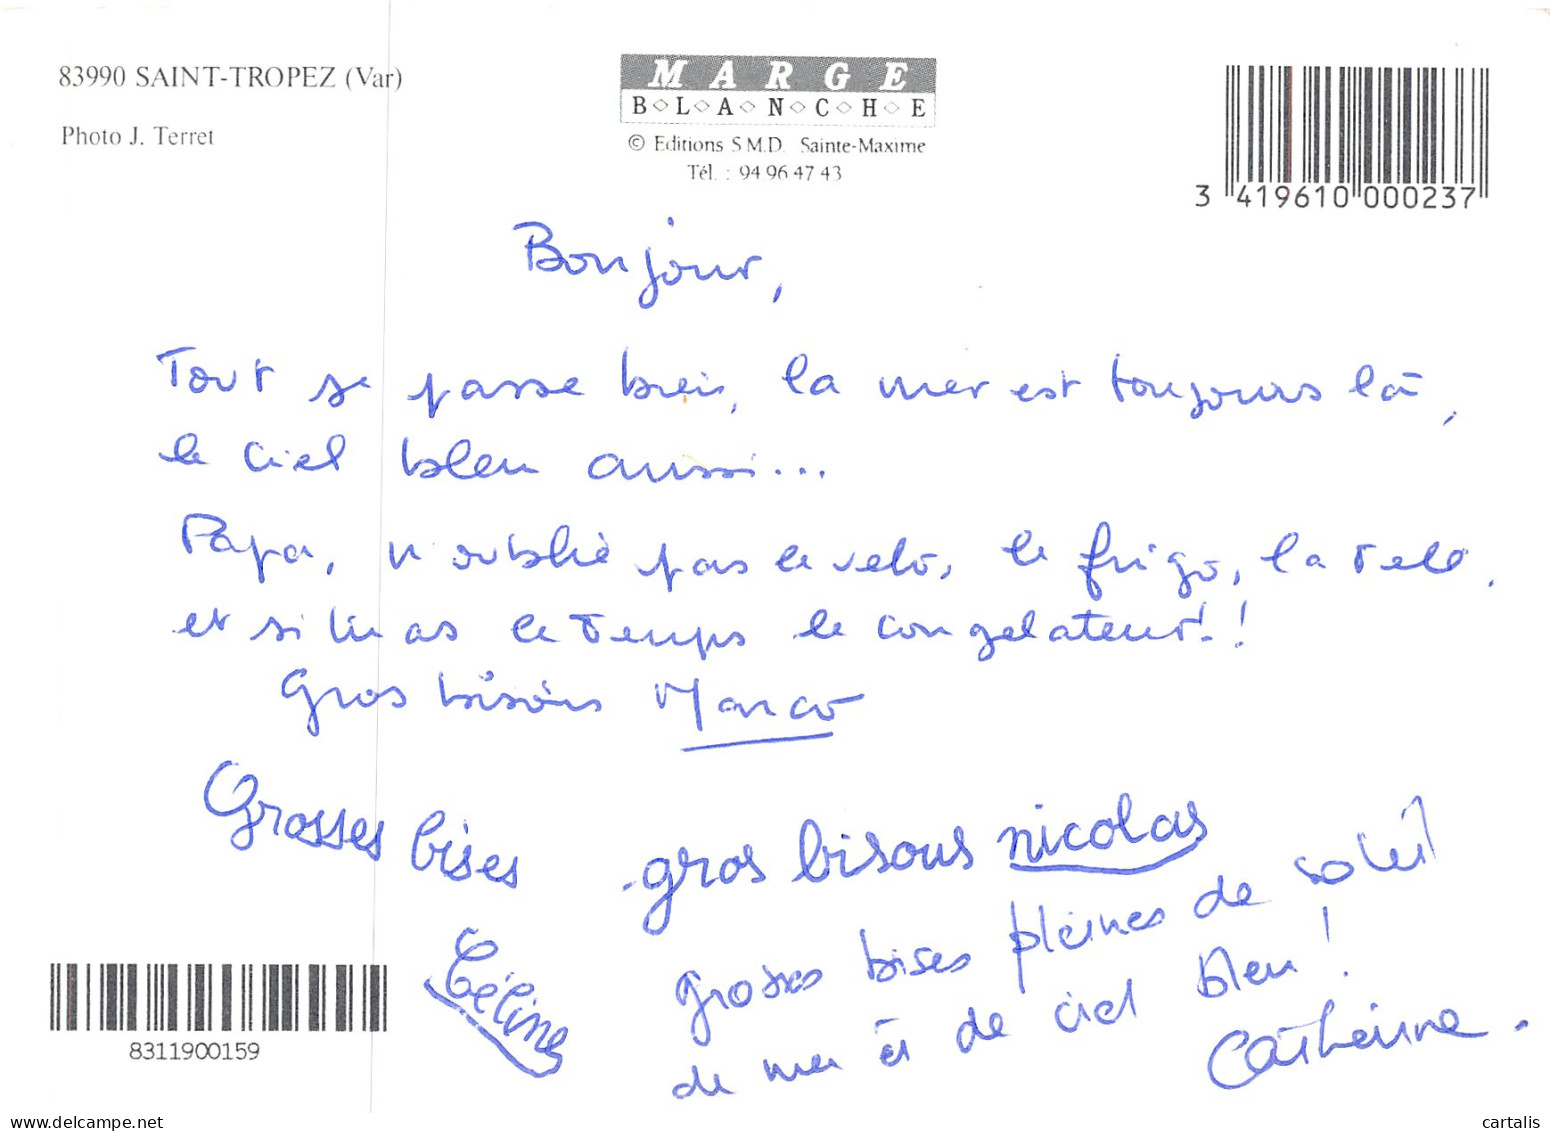 83990 SAINT-TROPEZ (Var)
Photo J. Terret
MARGE
B◇L◇A◇N◇C◇H◇E
© Editions S.M.D. Sainte-Maxime
Tél. : 94 96 47 43
3 419610 000237
Bonjour,
Tout se passe bien, la mer est toujours là,
le ciel bleu aussi...
Papa, n'oublie pas le velo, le frigo, la télé,
et si tu as le temps le congelateur!!
Gros bisous Marco
Grosses bises
Céline
gros bisous nicolas
grosses bises pleines de soleil
de mer et de ciel bleu !
Catherine.
8311900159
cartalis